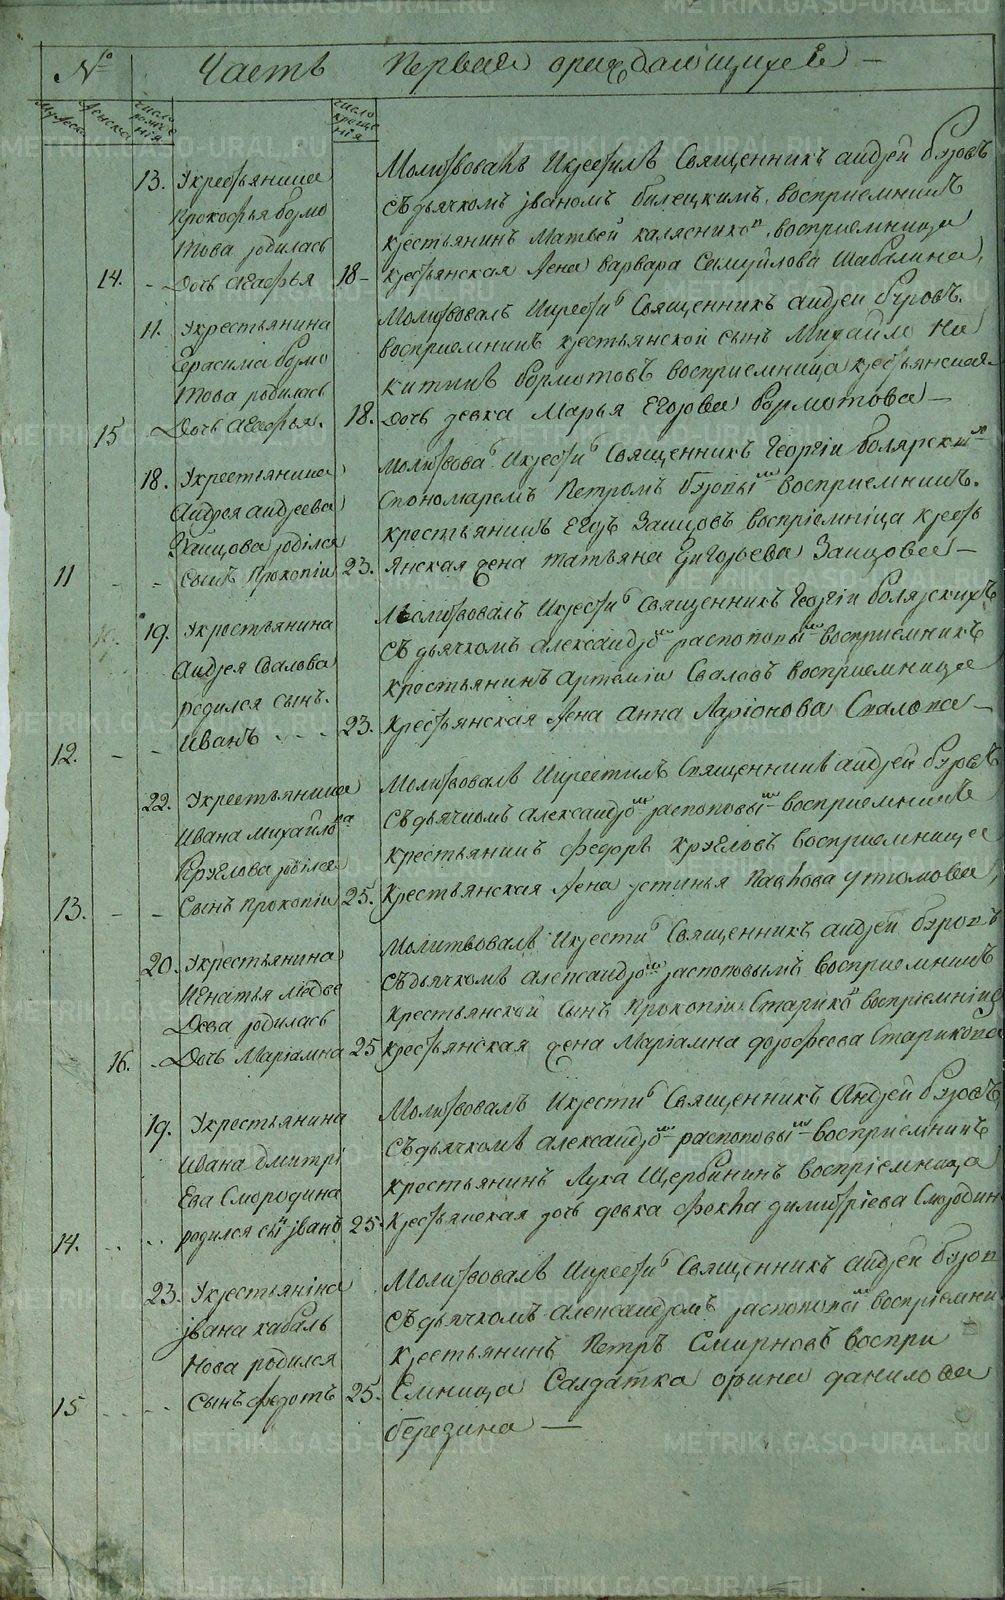 № Часть Первая ораждающихся —
Мужеска Женска число рожде нія число креще нія
13. Укрестьянина
Прокофья бормо
това родилась
14. - Дочь агафья 18 -
Молитвовалъ Икрестилъ Священникъ андрей бузовъ
съдьячкомъ іваномъ билецкимъ, восприемникъ
крестьянинъ Матвей калясниковъ, восприемница
крестьянская жена варвара Самуйлова Шабалина,
11. Укрестьянина
Герасима бормо
това родилась
15 Дочь агафья. 18.
Молитвовалъ Икрести Священникъ андрей бузовъ.
восприемникъ крестьянской сынъ Михайло Ни
китинъ бормотовъ восприемница крестьянская
дочь девка Марья Егорова бормотова —
18. Укрестьянина
андрея андреева
Заицова родился
11 - - сынъ Прокопіи 23.
Молитвова Икрести Священникъ Георгіи болярскихъ
спономаремъ Петромъ восприемникъ.
крестьянинъ Егоръ Заицовъ воспріемніца кресть
янская жена татьяна Григорьева Заицова —
19. Укростьянина
андрея Свалова
родился сынъ.
12. - - иванъ - - - 23.
Молитвовалъ Икрести Священникъ Георгіи болярскихъ
съ дьячкомъ александро распоповы восприемникъ
крестьянинъ артеміи Сваловъ восприемница
крестьянская жена анна Ларіонова Свалова —
22. Укрестьянина
ивана михайло ва
Круглова родился
13. - - Сынъ прокопіи 25.
Молитвовалъ Икрестилъ Священникъ андрей бузовъ
съдьячкомъ александро распоповы восприемникъ
крестьянинъ федоръ круглов восприемница
крестьянская жена устинья Павлова утомова,
20. Укрестьянина
игнатья
дева родилась
16. - Дочь Маріамна 25
Молитвовалъ Икрести Священникъ андрей бузовъ
съдьячкомъ александро распоповымъ восприемникъ
крестьянской сынъ Прокопіи Стариков воспріемніца
крестьянская жена Маріамна дорофеева Старикова
19. Укрестьянина
ивана дмитрі
Ева Смородина
14. - - родился сы іванъ 25.
Молитвовалъ Икрести Священникъ Андрей бузовъ
съдьячкомъ александро распоповы восприемникъ
крестьянинъ Лука Щербининъ воспріемница
крестьянская дочь девка фекла димитріева Смородин
23. Укрестьяніна
івана кабаль
нова родился
15 - - сынъ федотъ 25.
Молитвовалъ Икрести Священникъ андрей бузов
съдьячкомъ александромъ распоповы воспріемни
крестьянинъ Петръ Смирновъ воспри
емница Салдатка орина данилова
березина —
METRIKI.GASO-URAL.RU